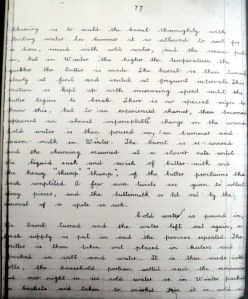 77
churning is to scald the barrel thoroughly with
boiling water. In summer it is allowed to rest for
a time, rinsed with cold water, and the cream put
in, but in Winter the higher the temperature the
quicker the butter is made. The barrel is then turned
slowly at first and vented at frequent intervals. The
motion is kept up with increasing speed until the
butter begins to break. There is no special sign to
prove this, but to an experienced churner, there becomes
apparent an almost imperceptible change in the sound.
Cold water is then poured in, in Summer and
warm milk in Winter. The barrel is
and the churning resumed at a slower rate until
the liquid rush and swish of butter-milk and
the heavy "thump" "thump" of the butter proclaims the
work completed. A few more twirls are given to collect
any pieces and the buttermilk is let out by the
removal of a spile or cork.
Cold water is poured in,
the barrel turned and the water left out again, a
fresh supply is put in and the process repeated. The
butter is then taken out placed in keelers and
washed in salt and water. It is then made into
rolls, the household portion salted and the
over night in cold water or in Winter packed
in baskets and taken to market. it is sold